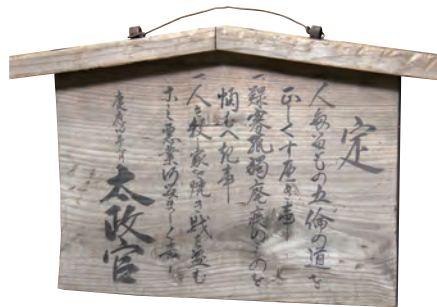 定
一人たるもの五倫の道を
正しくすへき事
一鰥寡孤獨癈疾のものを
憫むへき事
一人を殺し家を焼き財を盗む
等之悪業あるましく事
慶應四年三月
太政官